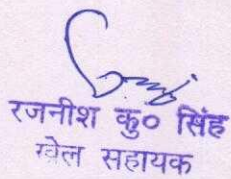 रजनीश कु० सिंह
खेल सहायक